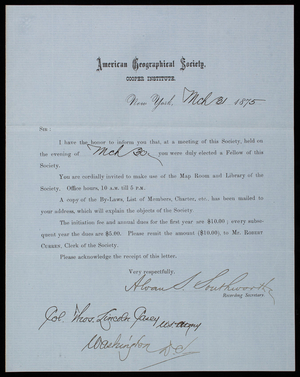 American Geographical Society,
COOPER INSTITUTE.
New York, Mch 31 1875
Sir:
I have the honor to inform you that, at a meeting of this Society, held on
the evening of Mch 30, you were duly elected a Fellow of this
Society.
You are cordially invited to make use of the Map Room and Library of the
Society. Office hours, 10 A.M. till 5 P.M.
A copy of the By-Laws, List of Members, Charter, etc., has been mailed to
your address, which will explain the objects of the Society
The initiation fee and annual dues for the first year are $10.00; every subse-
quent year the dues are $5.00. Please remit the amount ($10.00), to Mr. ROBERT
CURREN, Clerk of the Society.
Please acknowledge the receipt of this letter.
Very respectfully,
Alvan S. Southworth
Recording Secretary.
Col. Thos. Lincoln Casey US Army
Washington DC